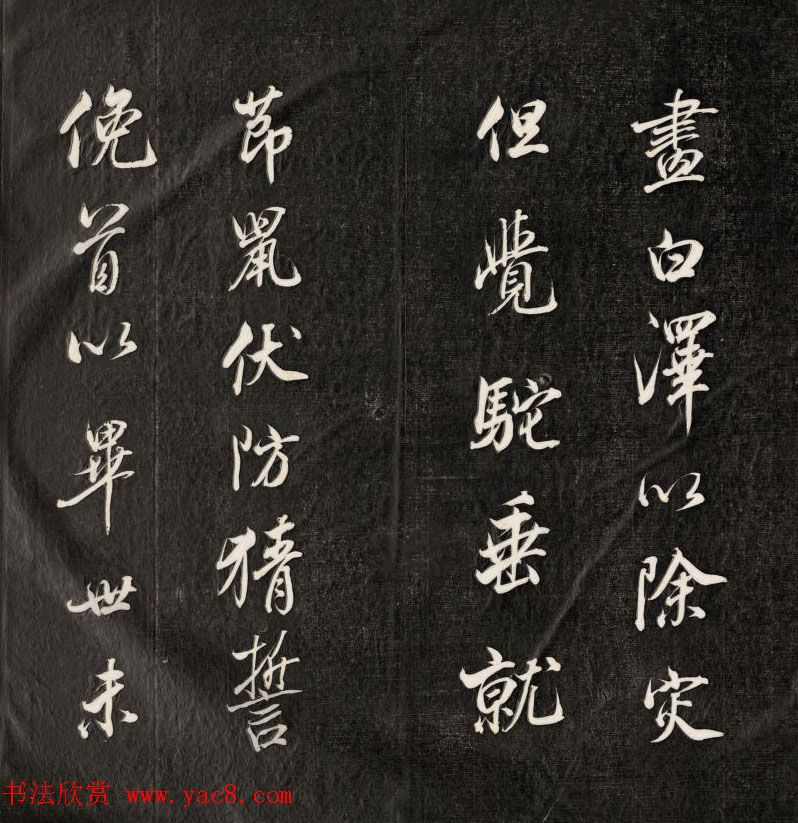 畫白澤以除灾
但覺駝垂就
鼠伏防猜誓
俛首以畢世未
书法欣赏 www.yac8.com